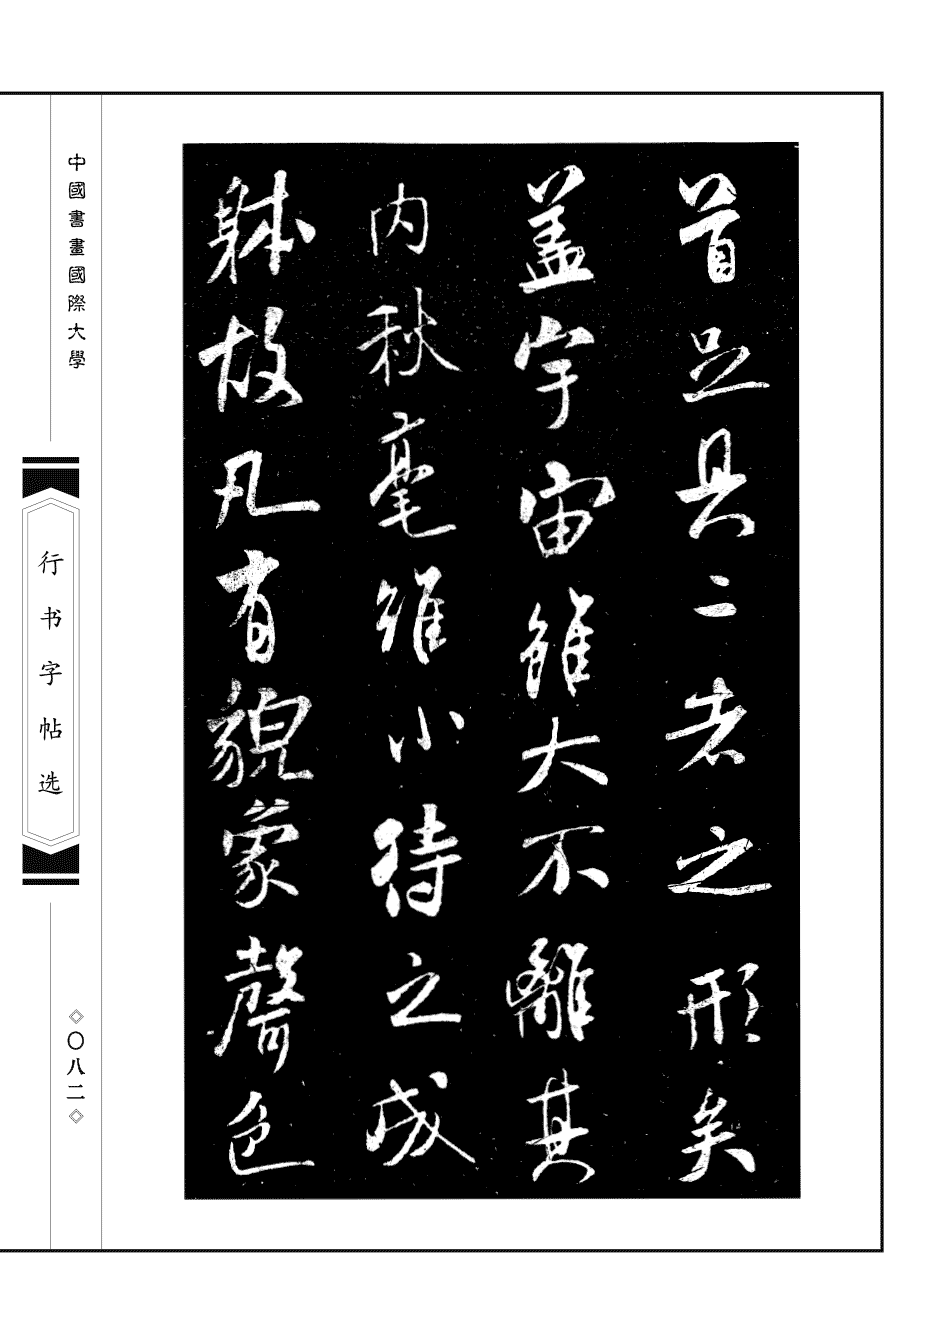 首足具二者之形矣
盖宇宙雖大不離其
内秋毫雖小待之成
躰故凡有貌象聲色
中國書畫國際大學
行书字帖选
〇八二